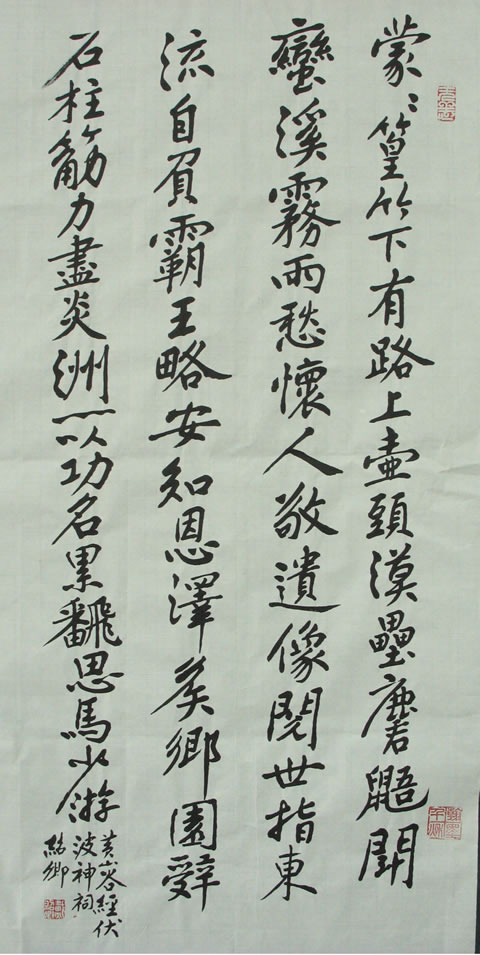 蒙〻篁竹下有路上壺頭漢壘麏鼯鬭
蠻溪霧雨愁懷人敬遺像閱世指東
流自負霸王略安知恩澤矦鄉園辭
石柱筋力盡炎洲一以功名累飜思馬少游
黃山谷經伏
波神祠
紹卿